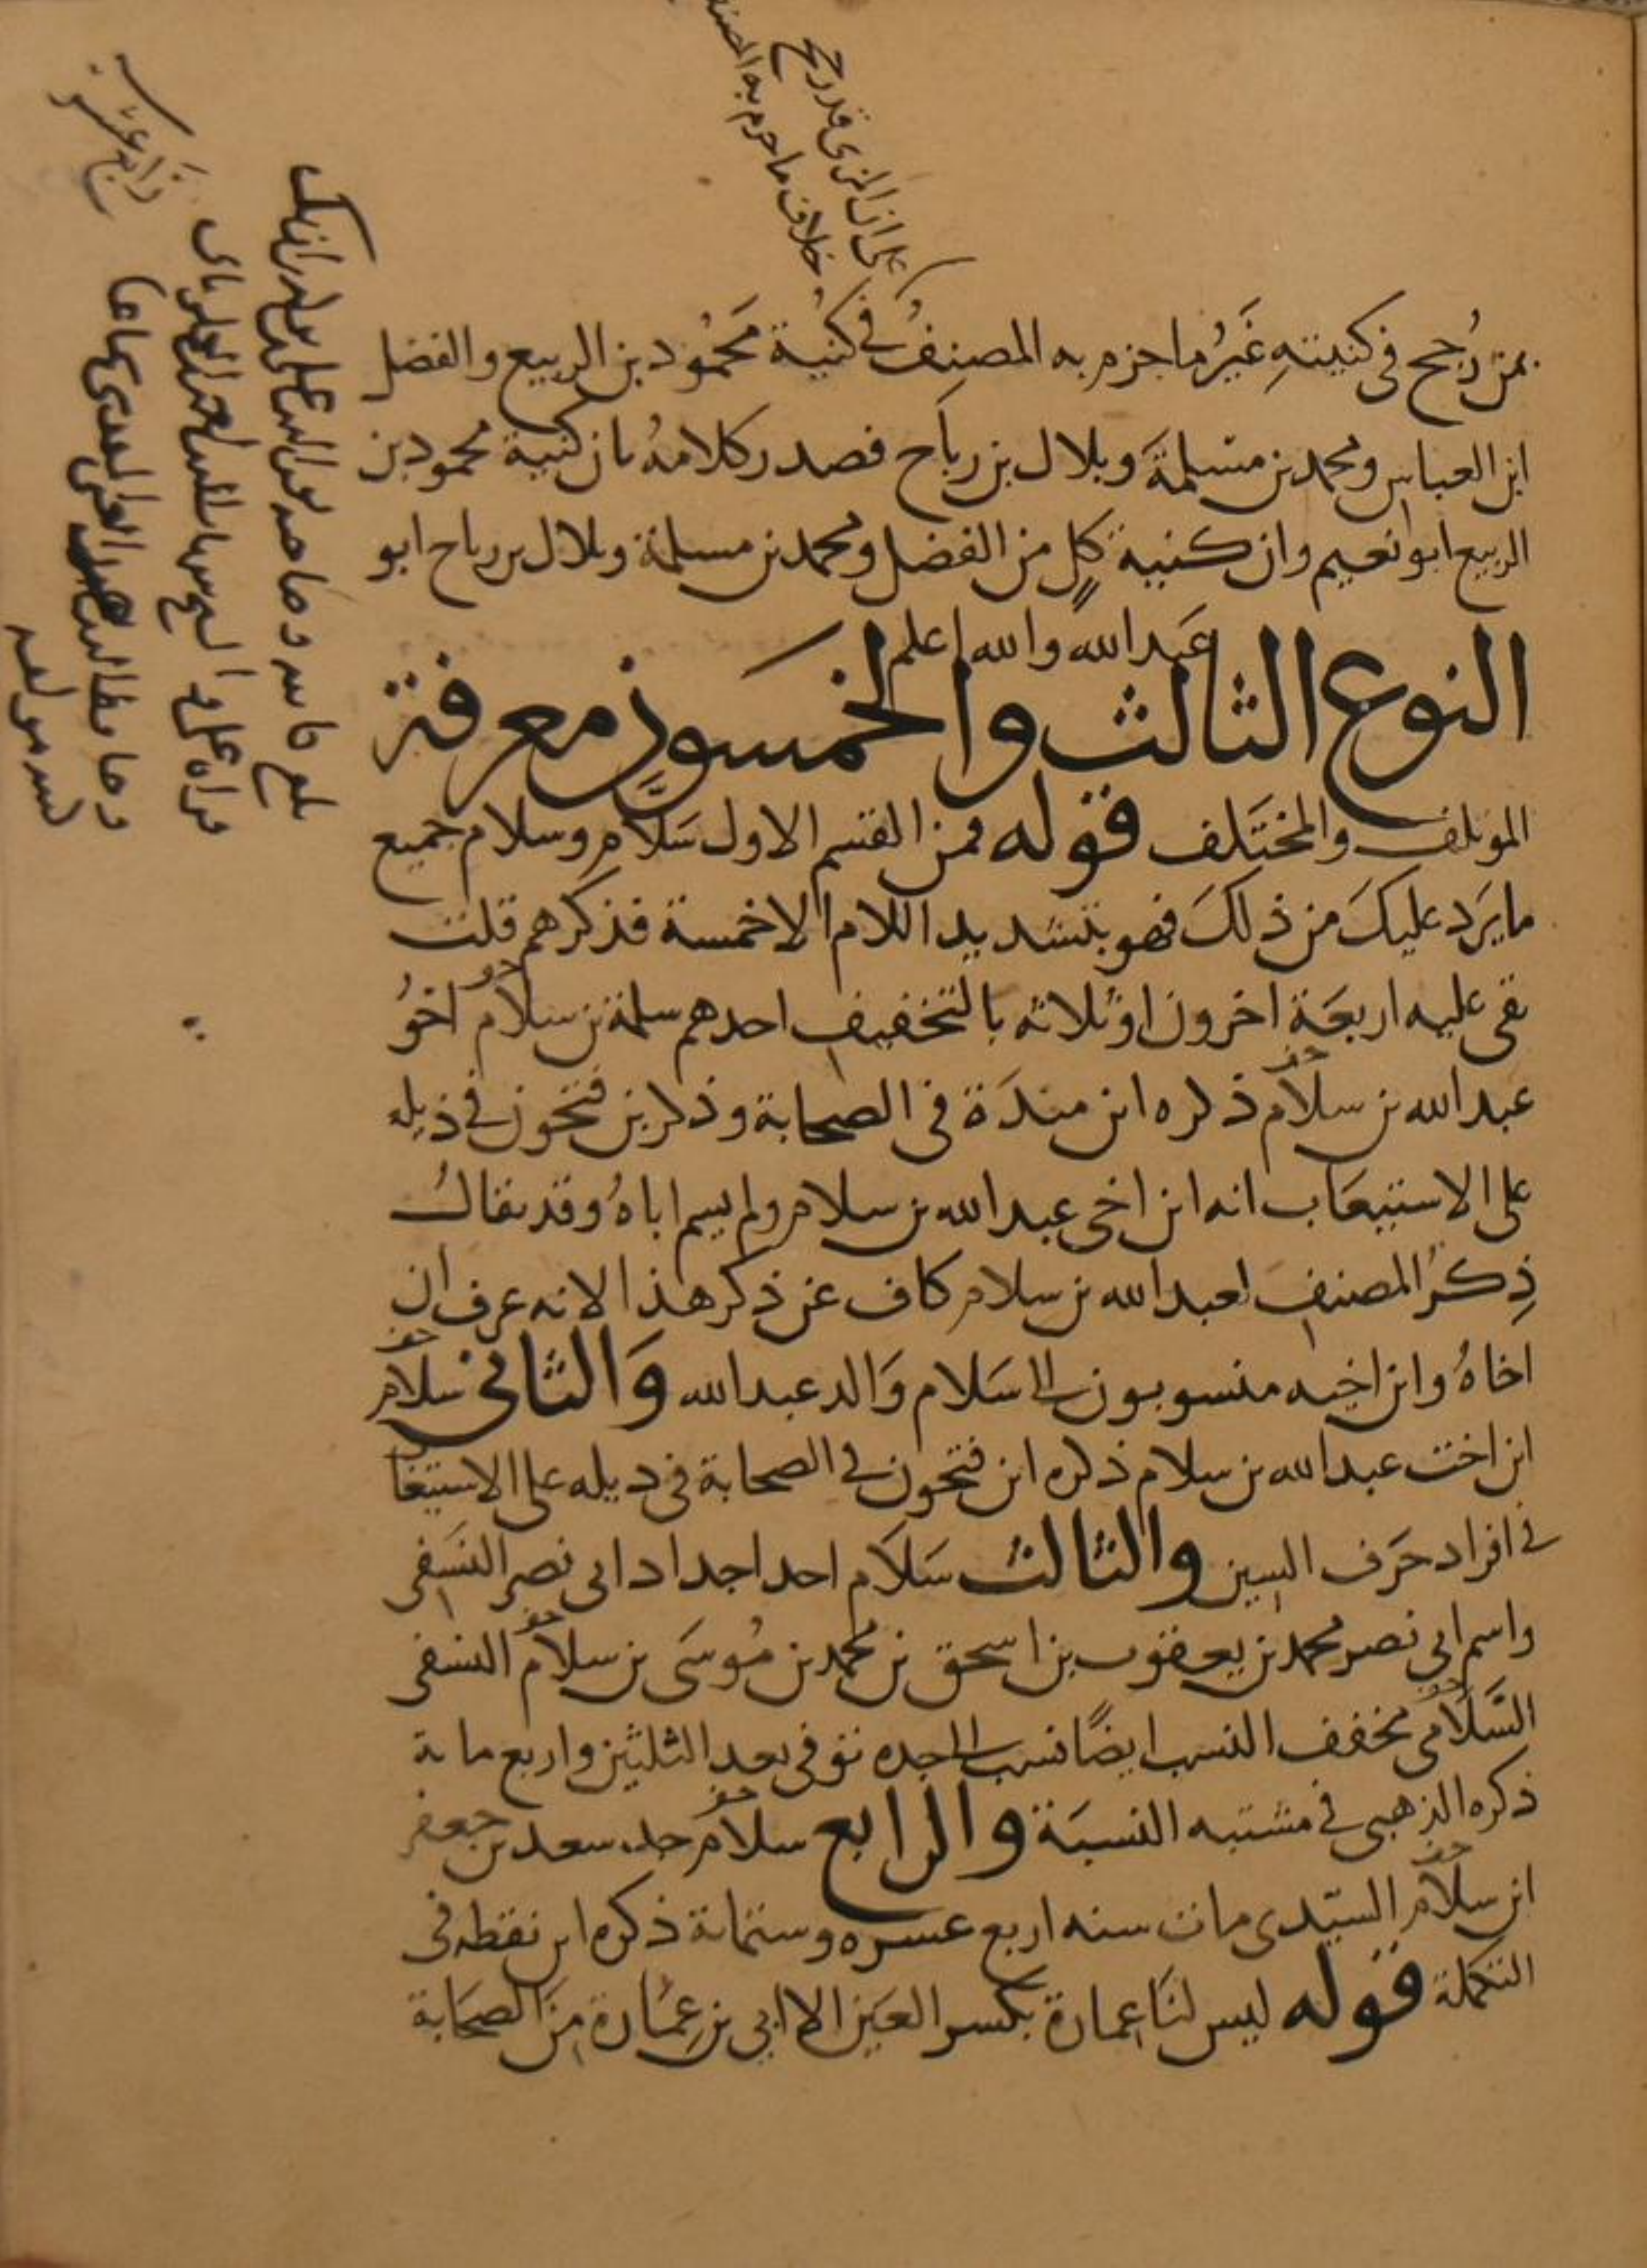 على ان المزى قد رجح
خلاف ما جزم به المصنف
بمن رُجح فى كنيتهِ غَيرُ ما جزم به المصنفُ فى كنية محمُود بن الربيع والفضل
ابن العباس ومحمد بن مسْلمَة وبلال بن رباَح فصدر كلامهُ بان كنية محمود بن
الربيع ابو نعيم وان كنية كلٍ من الفضل ومحمد بن مسلمة وبلال بن رباح ابو
عَبد الله والله اعلم
النوع الثالث والخمسون معرفة
المؤتلف والمختَلف قوله فمن القسم الاول سَلّام وسلام جميع
ما يَرد عليكَ من ذلكَ فهو بتشديد اللام الا خمسة فذكرهم قلت
بقى عليه اربعَة اخرون او ثلاثه بالتخفيف احدهم سلمة بن سلام اخوُ
عبد الله بن سلام ذكره ابن مندَة فى الصحابة وذكر بن فتحون فى ذيله
على الاستيعَاب انه ابن اخى عبد الله بن سلام ولم يسم اباهُ وقد يقال
ذِكرُ المصنف لعبد الله بن سلام كاف عن ذكر هذا لانه عرف ان
اخاهُ وابن اخيه منسوبون الى سَلام وَالد عبد الله وَالثانى سلام
ابن اخت عبد الله بن سلام ذكره ابن فتحون فى الصحابة فى ديله على الاستيعا
فى افراد حَرف السين والثالث سَلَام احد اجداد ابى نصر النسَفى
واسم ابى نصر محمد بن يعقوب بن اسحق بن محمد بن مُوسَى بن سلام النسفى
السَّلَامى مخفف النسب ايضًا نسب الى جده توفى بعد الثلثين واربع ماىة
ذكره الذهبى فى مشتبه النسبَة والرابع سلام جد سعد بن جعفر
ابن سلام السيّدى مات سنه اربع عسره وستماىة ذكره ابن نقطه فى
التكملة قوله ليس لنَا عمارة بكسر العَين الا ابى بن عِمَارة مِنَ الصحَابة